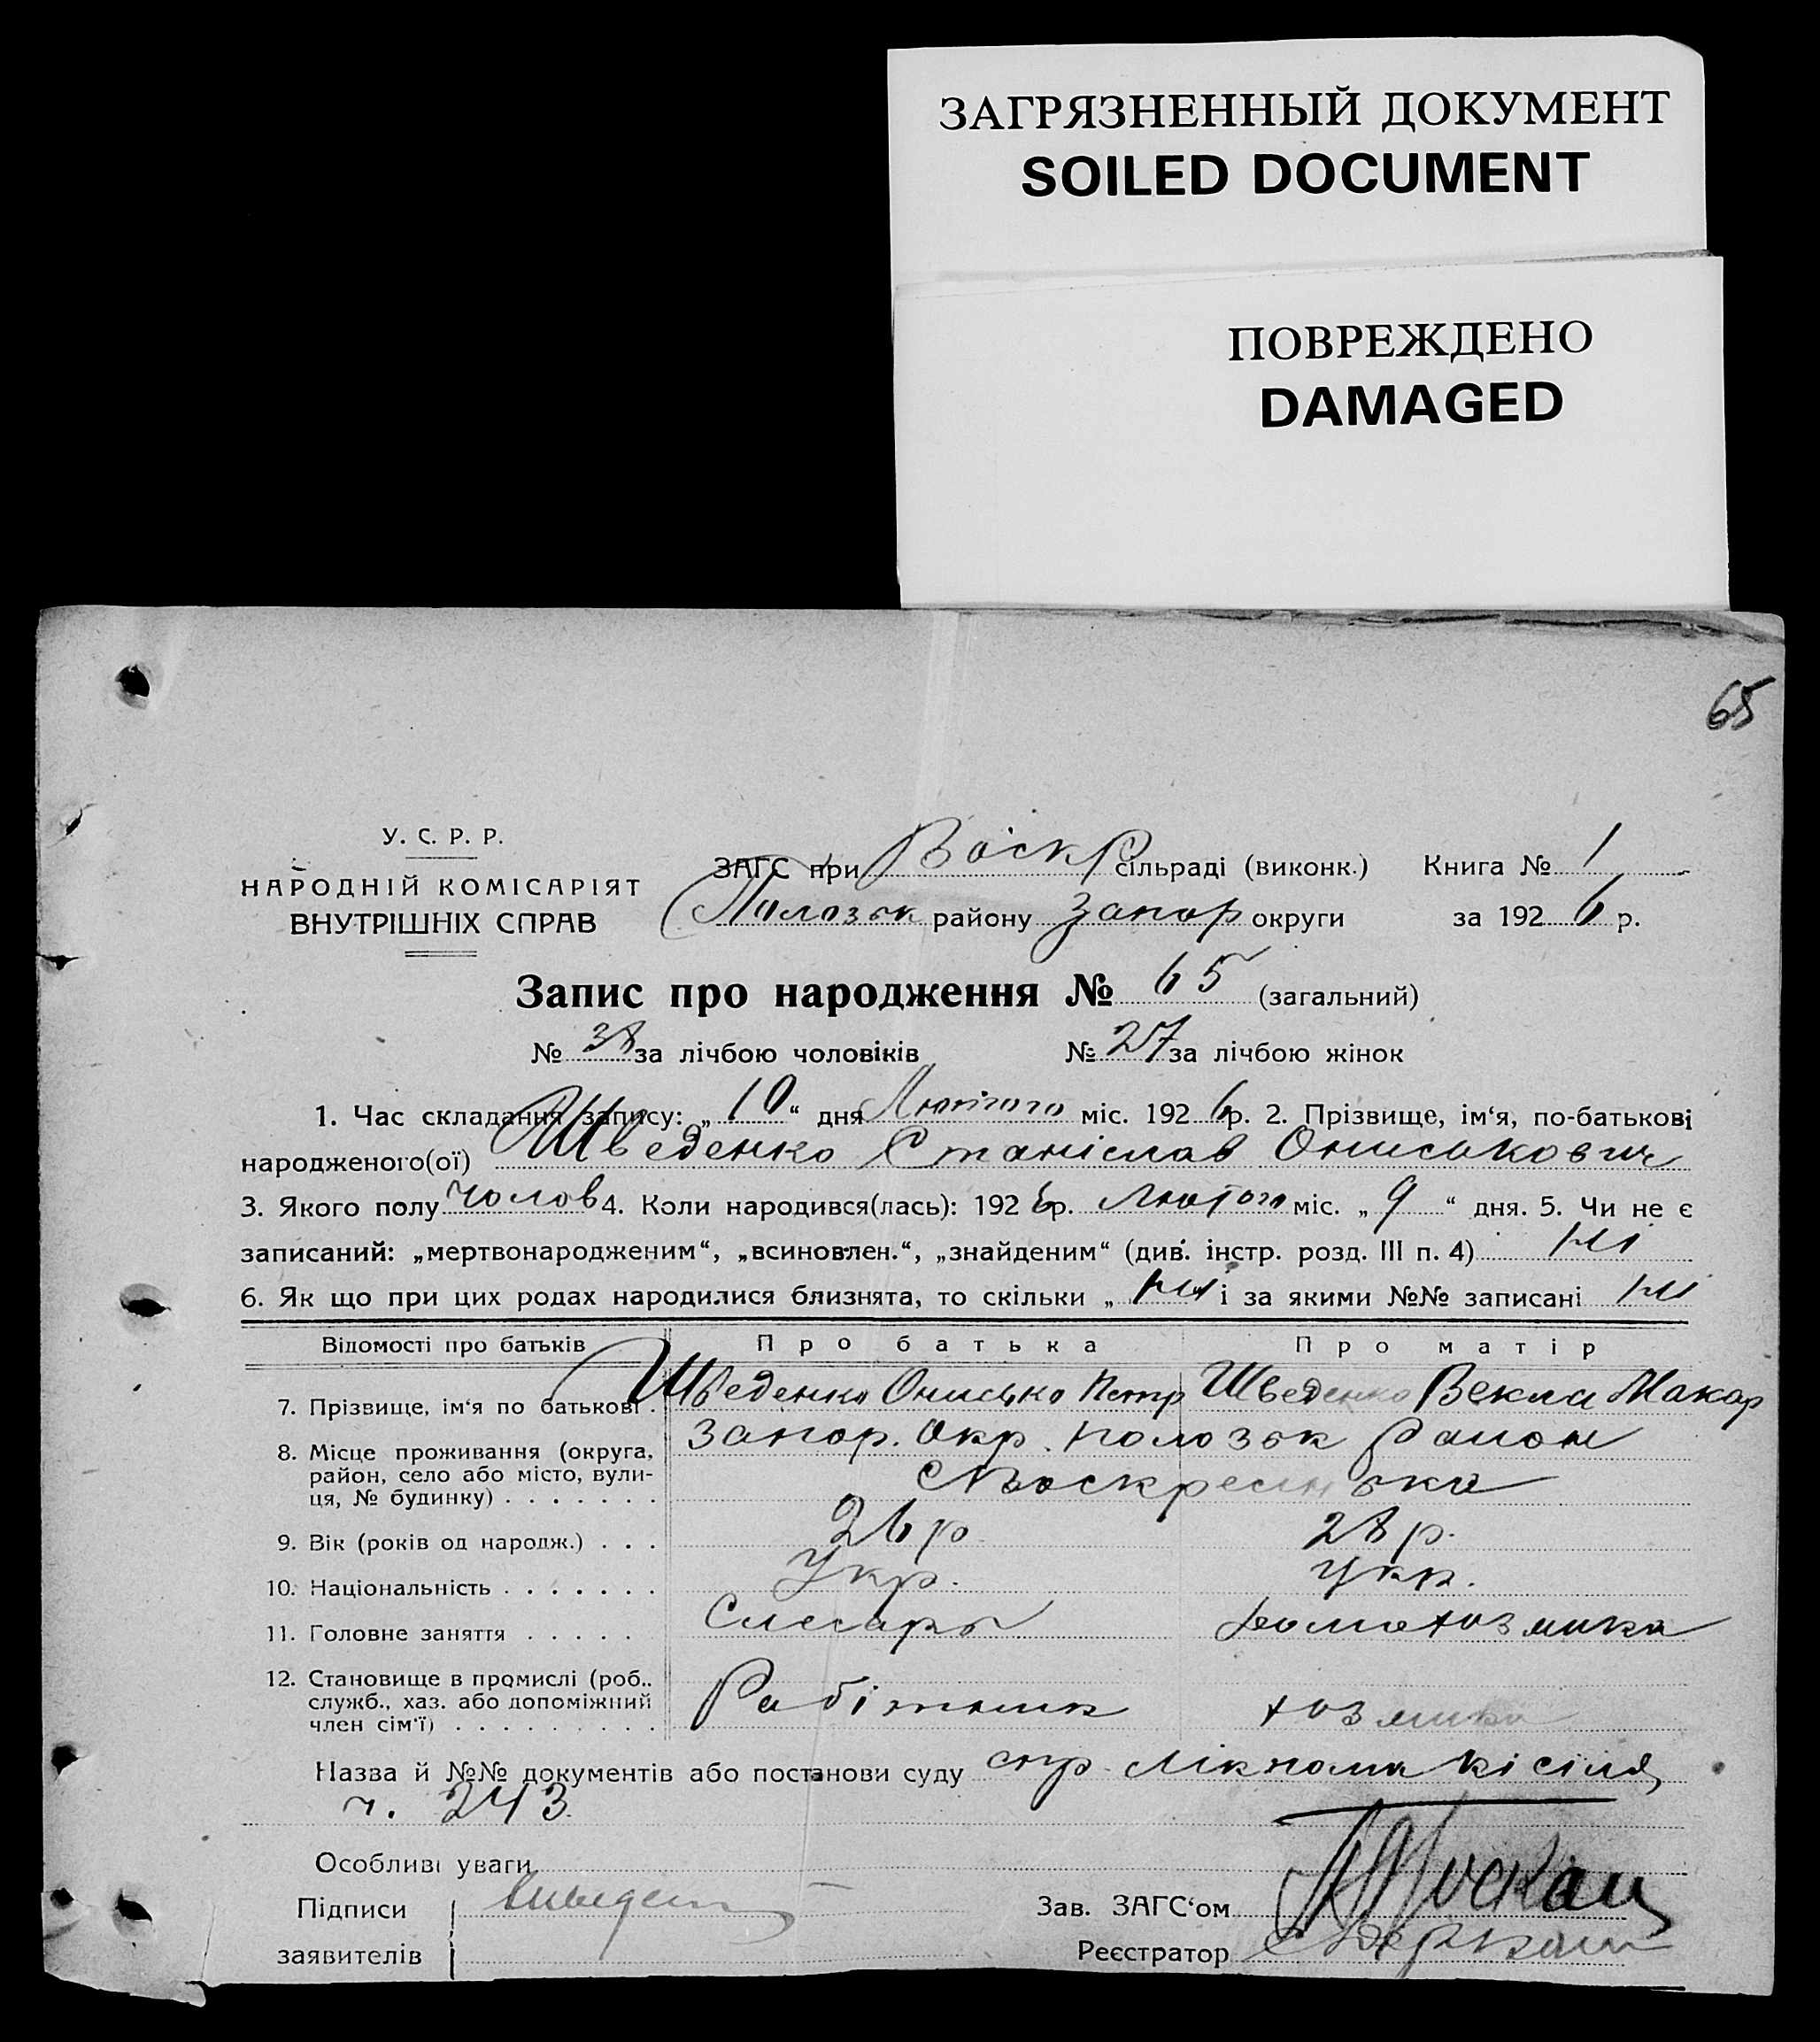 ЗАГРЯЗНЕННЫЙ ДОКУМЕНТ
SOILED DOCUMENT
ПОВРЕЖДЕНО
DAMAGED
65
У. С. Р. Р.
НАРОДНІЙ КОМІСАРІЯТ
ВНУТРІШНІХ СПРАВ
ЗАГС при Воскр сільраді (виконк.) Книга № 1
Полозьк району Запор округи за 1926 р.
Запис про народження № 65 (загальний)
№ 38 за лічбою чоловіків № 27 за лічбою жінок
1. Час складання запису: „10“ дня Лютого міс. 1926 р. 2. Прізвище, ім‘я, по-батькові
народженого(ої) Шведенко Станіслав Ониськович
3. Якого полу чолов 4. Коли народився(лась): 1926 р. Лютого міс. „9“ дня. 5. Чи не є
записаний: „мертвонародженим“, „всиновлен.“, „знайденим“ (див. інстр. розд. III п. 4) ні
6. Як що при цих родах народилися близнята, то скільки „ні“ і за якими №№ записані ні
Відомості про батьків Про батька Про матір
7. Прізвище, ім‘я по батькові . Шведенко Онисько Петр Шведенко Векла Макар
8. Місце проживання (округа, район, село або місто, вулиця, № будинку) . . . . . . . Запор. Окр. Полозьк Район
с Воскресенька
9. Вік (років од народж.) . . . 26 р. 28 р.
10. Національність . . . . . . . Укр. Укр.
11. Головне заняття . . . . . Слесарь домохозяика
12. Становище в промислі (роб., служб., хаз. або допоміжний член сім‘ї) . . . . . . . . . Рабітник хозяика
Назва й №№ документів або постанови суду спр. Лікпома Кісіля
ч. 243
Особливі уваги
Підписи Шведен
заявителів
Зав. ЗАГС‘ом
Реєстратор